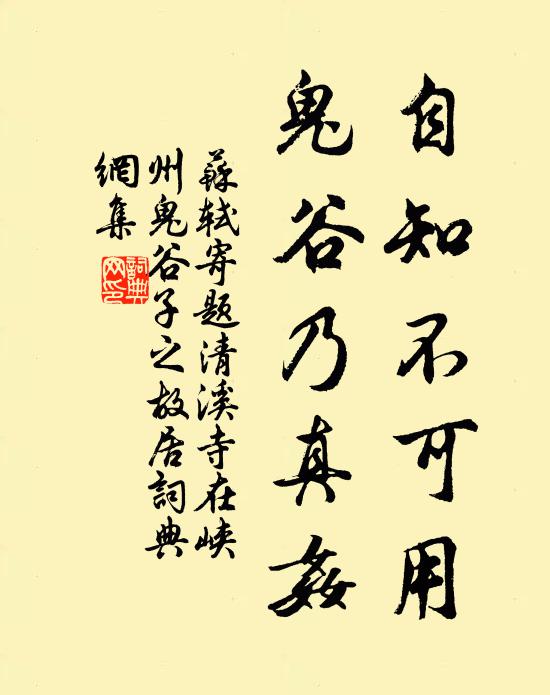 自知不可用
鬼谷乃真姦
蘇軾寄題清溪寺在峽
州鬼谷子之故居詞典
網集
詞典
网印